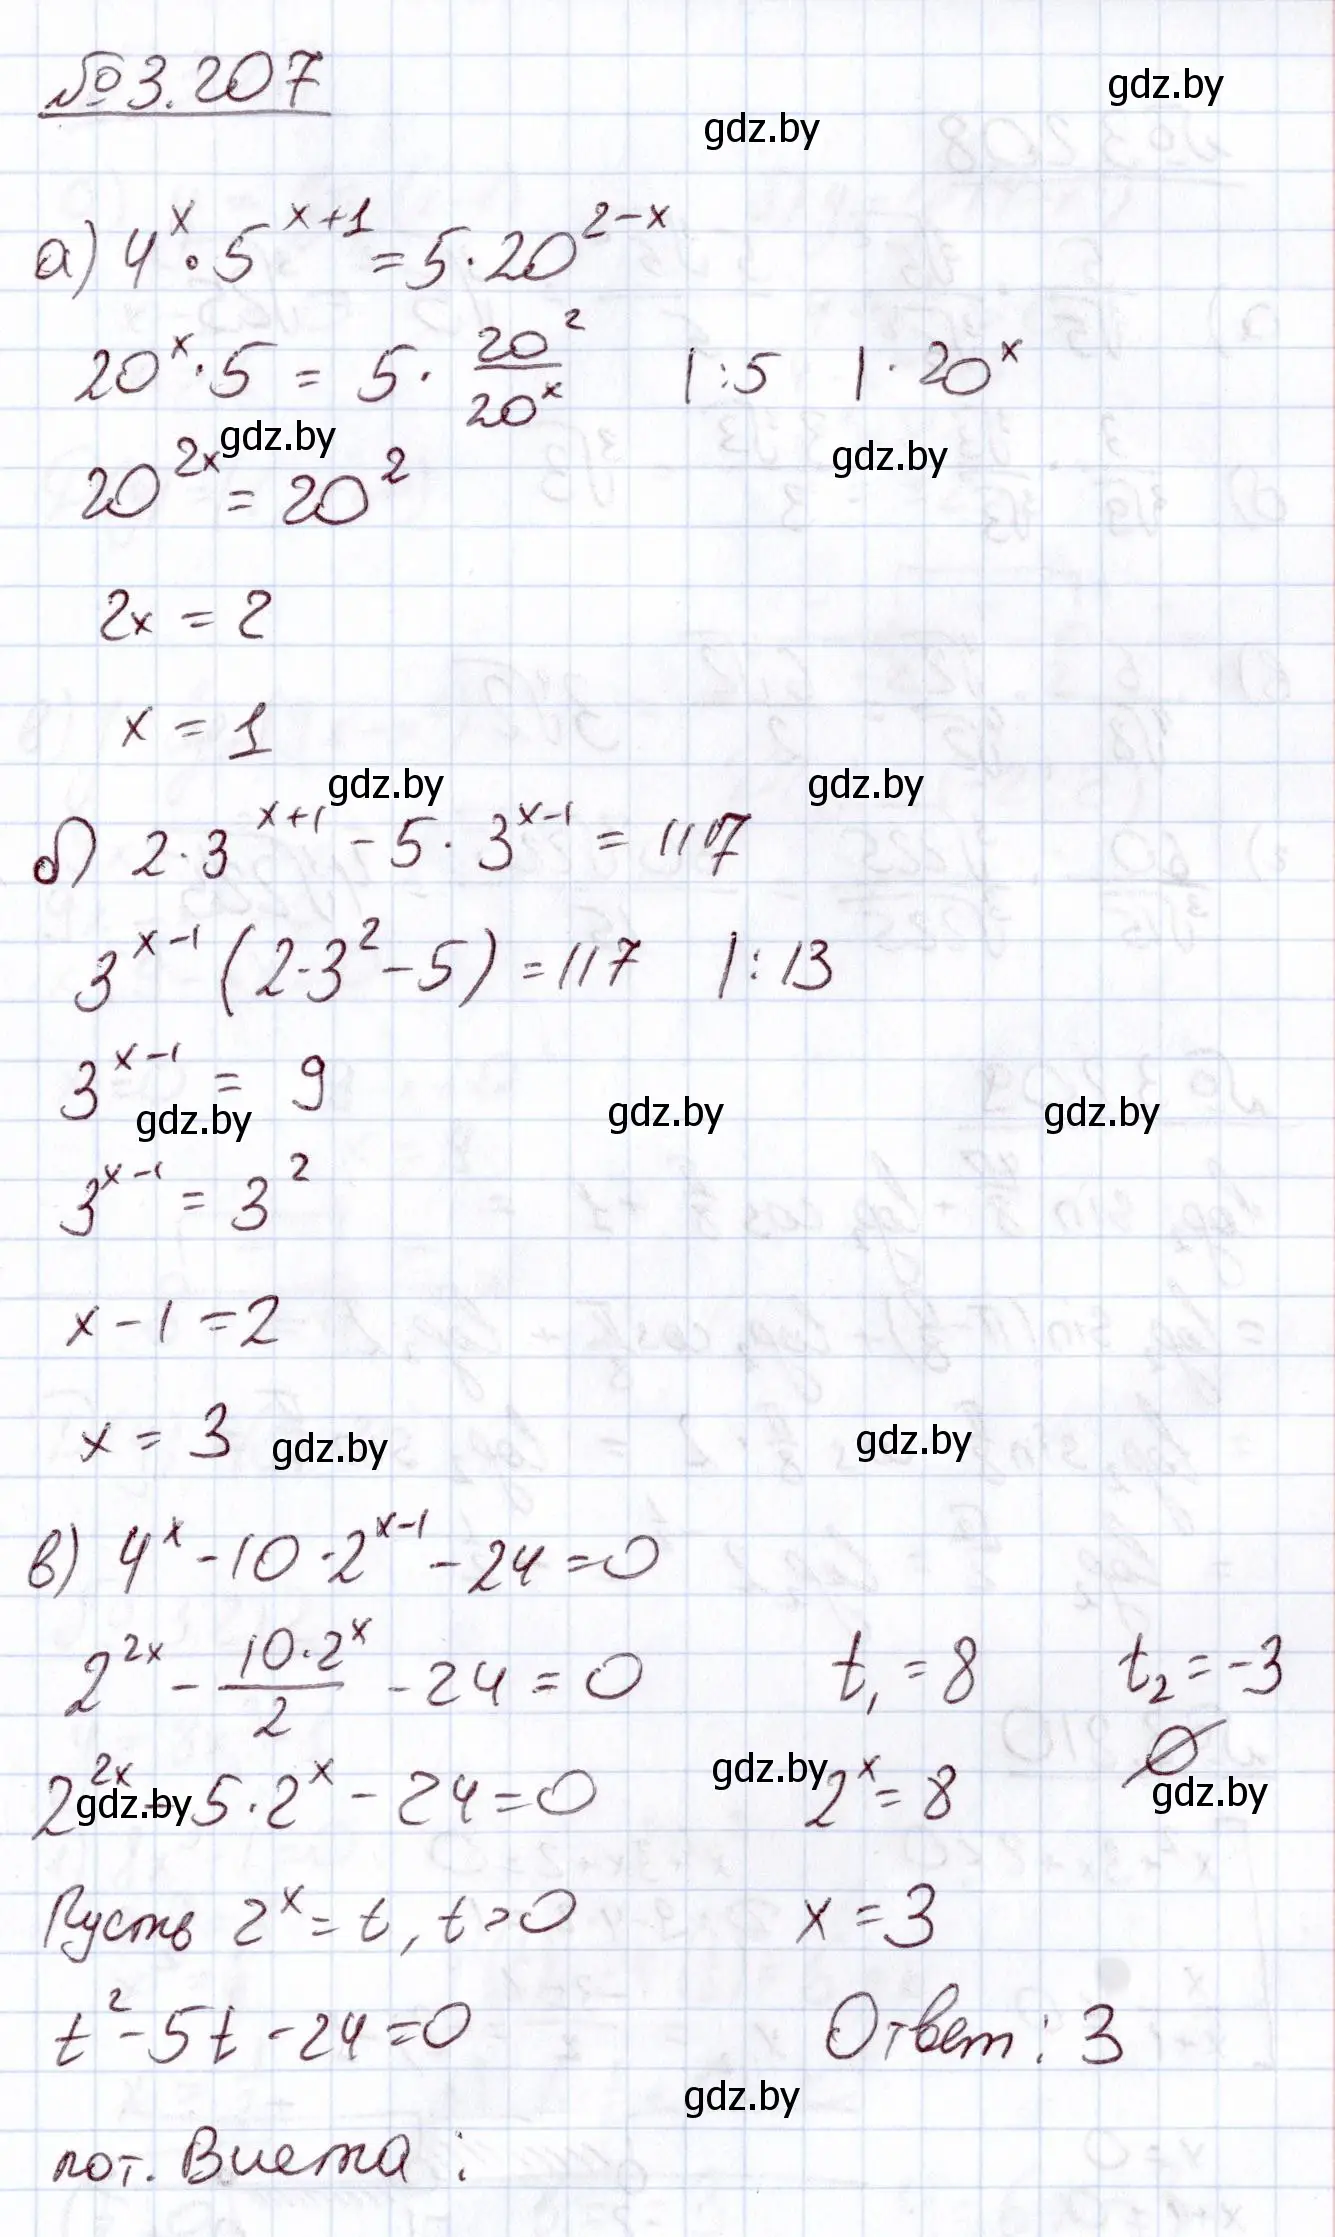 №3.207
gdz.by
gdz.by
а) 4^x · 5^(x+1) = 5 · 20^(2-x)
20^x · 5 = 5 · 20^2/20^x |:5 | · 20^x
gdz.by
gdz.by
20^(2x) = 20^2
2x = 2
x = 1
gdz.by
gdz.by
б) 2·3^(x+1) - 5·3^(x-1) = 117
3^(x-1) (2·3^2 - 5) = 117 |:13
3^(x-1) = 9
gdz.by
gdz.by
gdz.by
3^(x-1) = 3^2
x - 1 = 2
x = 3
gdz.by
gdz.by
в) 4^x - 10·2^(x-1) - 24 = 0
2^(2x) - 10·2^x/2 - 24 = 0
2^(2x) - 5·2^x - 24 = 0
gdz.by
Пусть 2^x = t, t>0
t^2 - 5t - 24 = 0
по т. Виета :
t₁ = 8 t₂ = -3
∅
gdz.by
gdz.by
2^x = 8
x = 3
Ответ: 3
gdz.by